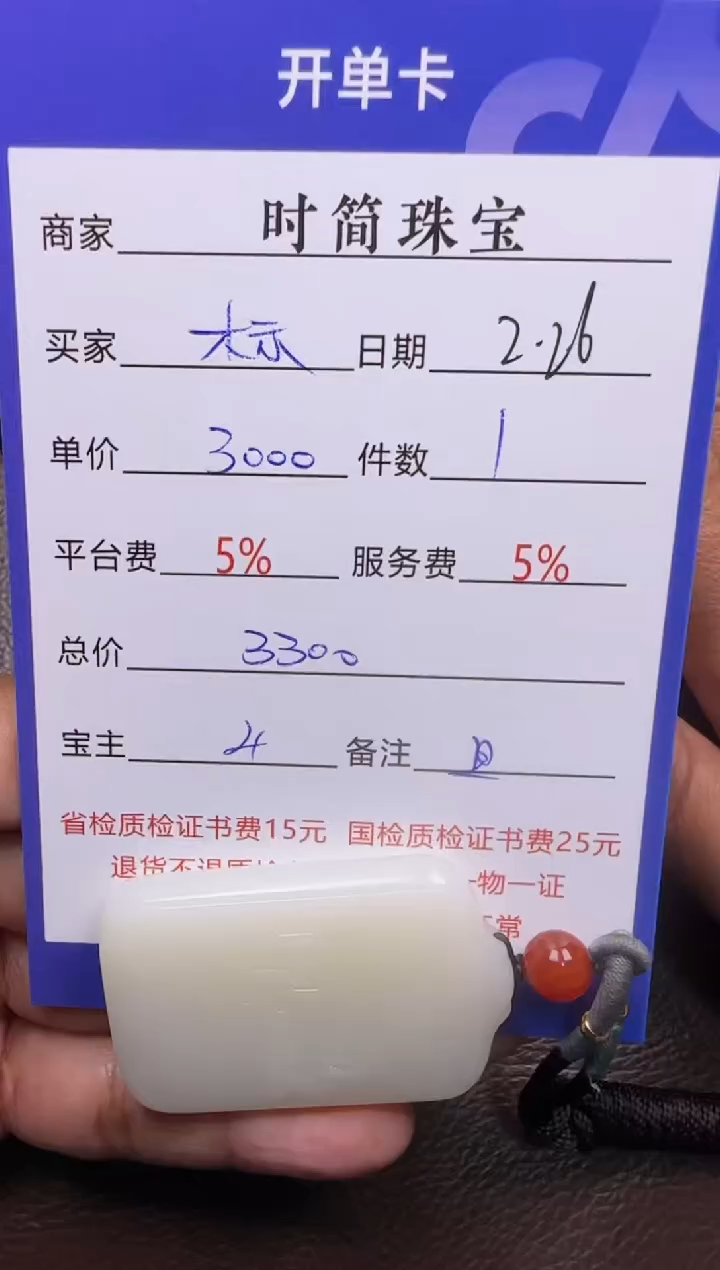 开单卡
商家 时简珠宝
买家 木示 日期 2.26
单价 3000 件数 1
平台费 5% 服务费 5%
总价 3300
宝主 4 备注
省检质检证书费15元 国检质检证书费25元
退货不退质检 一物一证
常